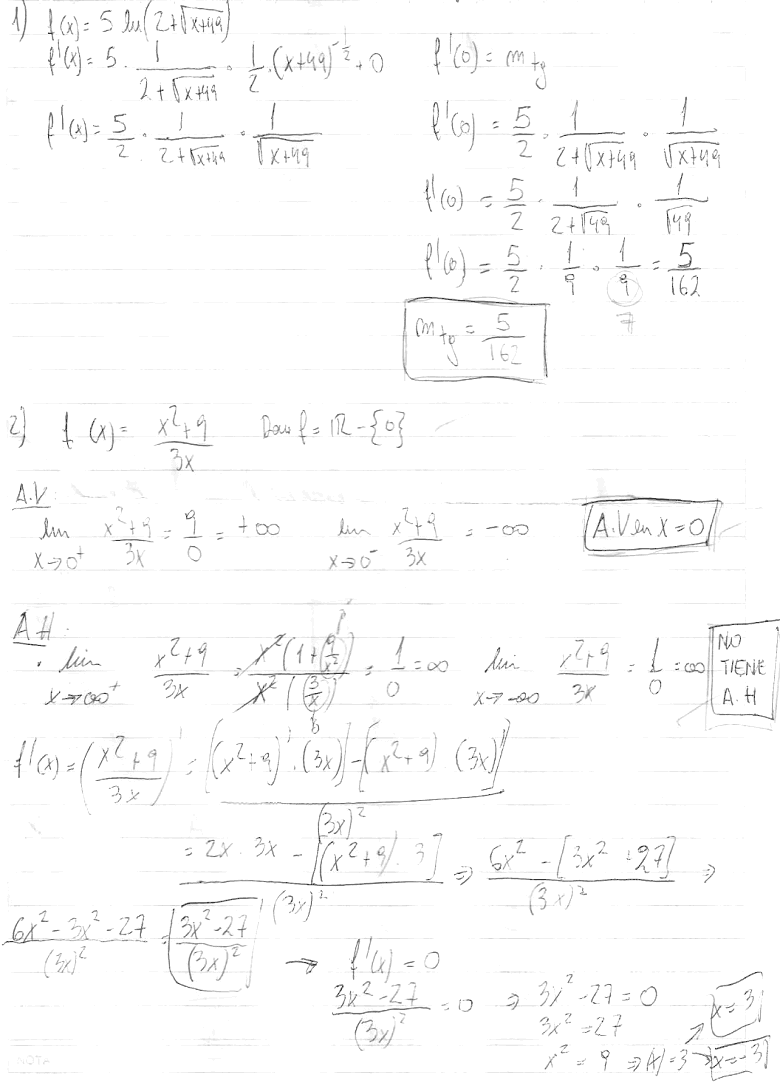 1) f(x) = 5 ln(2+√(x+49))
f'(x) = 5 · 1/(2+√(x+49)) · 1/2 · (x+49)^(-1/2) + 0
f'(x) = 5/2 · 1/(2+√(x+49)) · 1/√(x+49)
f'(0) = m tg
f'(0) = 5/2 · 1/(2+√(x+49)) · 1/√(x+49)
f'(0) = 5/2 · 1/(2+√49) · 1/√49
f'(0) = 5/2 · 1/9 · 1/9 = 5/162
7
m tg = 5/162
2) f(x) = (x²+9)/(3x) Dom f = IR - {0}
A.V
lim x→0⁺ (x²+9)/(3x) = 9/0 = +∞ lim x→0⁻ (x²+9)/(3x) = -∞ A.V en x = 0
A.H:
· lim x→∞⁺ (x²+9)/(3x) = x²(1+(9/x²))/x²(3/x) = 1/0 = ∞ lim x→-∞ (x²+9)/(3x) = 1/0 = ∞ NO TIENE A.H
f'(x) = ((x²+9)/(3x))' = [(x²+9)' · (3x)] - [(x²+9) · (3x)'] / (3x)²
= 2x · 3x - [(x²+9) · 3] / (3x)² ⇒ 6x² - [3x² + 27] / (3x)² ⇒
(6x² - 3x² - 27)/(3x)² = (3x² - 27)/(3x)² → f'(x) = 0
(3x² - 27)/(3x)² = 0 ⇒ 3x² - 27 = 0
3x² = 27
x² = 9 ⇒ |x| = 3 → x = 3
→ x = -3
NOTA